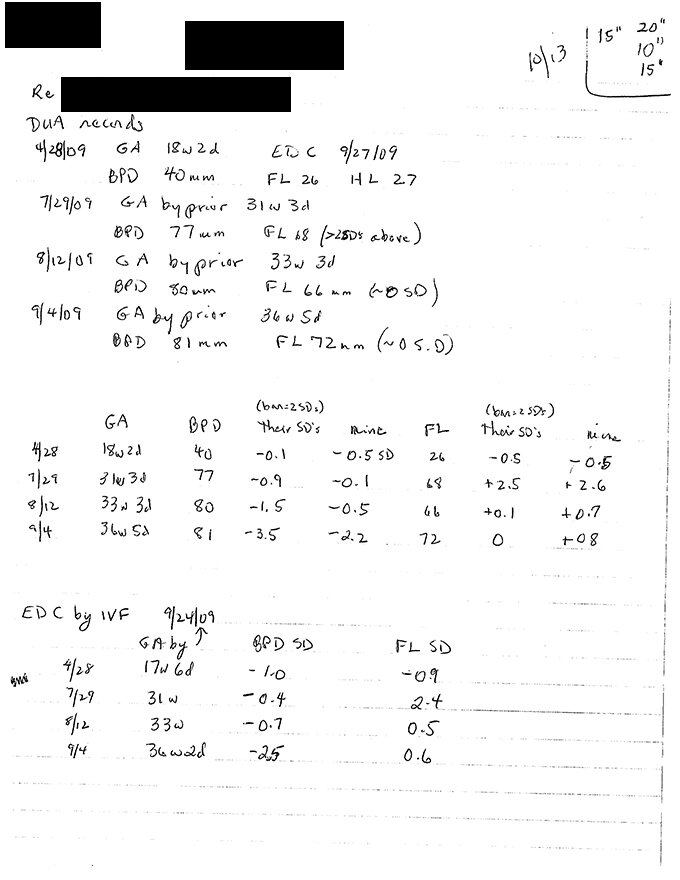 10/13 15" 20"
10"
15"
Re
DUA records
4/28/09 GA 18w2d EDC 9/27/09
BPD 40mm FL 26 HL 27
7/29/09 GA by prior 31w 3d
BPD 77mm FL 68 (>2SDs above)
8/12/09 GA by prior 33w 3d
BPD 80mm FL 66mm (~0 SD)
9/4/09 GA by prior 36w 5d
BPD 81mm FL 72mm (~0 S.D)
(bar=2SDs) (bar=2SDs)
GA BPD Their SD's mine FL Their SD's mine
4/28 18w2d 40 -0.1 -0.5 SD 26 -0.5 -0.5
7/29 31w 3d 77 -0.9 -0.1 68 +2.5 +2.6
8/12 33w 3d 80 -1.5 -0.5 66 +0.1 +0.7
9/4 36w 5d 81 -3.5 -2.2 72 0 +08
EDC by IVF 9/24/09
GA by ↑ BPD SD FL SD
4/28 17w 6d -1.0 -0.9
7/29 31w -0.4 2.4
8/12 33w -0.7 0.5
9/4 36w2d -25 0.6